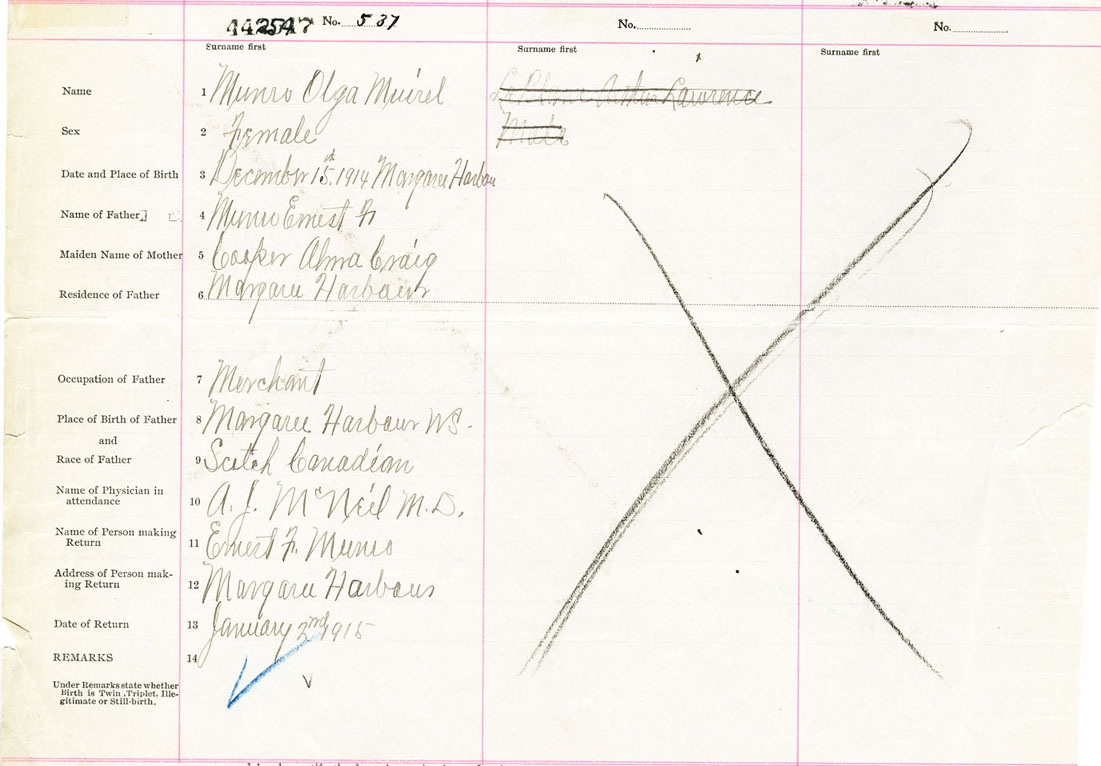 442547 No. 537 No. No.
Surname first Surname first Surname first
Name 1 Munro Olga Muirel Arthur Lawrence
Sex 2 Female Male
Date and Place of Birth 3 December 15th, 1914 Margaree Harbour
Name of Father 4 Munro Ernest F.
Maiden Name of Mother 5 Cooper Alma Craig
Residence of Father 6 Margaree Harbour
Occupation of Father 7 Merchant
Place of Birth of Father 8 Margaree Harbour NS.
and
Race of Father 9 Scotch Canadian
Name of Physician in
attendance 10 A. J. McNeil M.D.
Name of Person making
Return 11 Ernest F. Munro
Address of Person mak-
ing Return 12 Margaree Harbour
Date of Return 13 January 2nd 1915
REMARKS 14
Under Remarks state whether
Birth is Twin, Triplet, Ille-
gitimate or Still-birth.